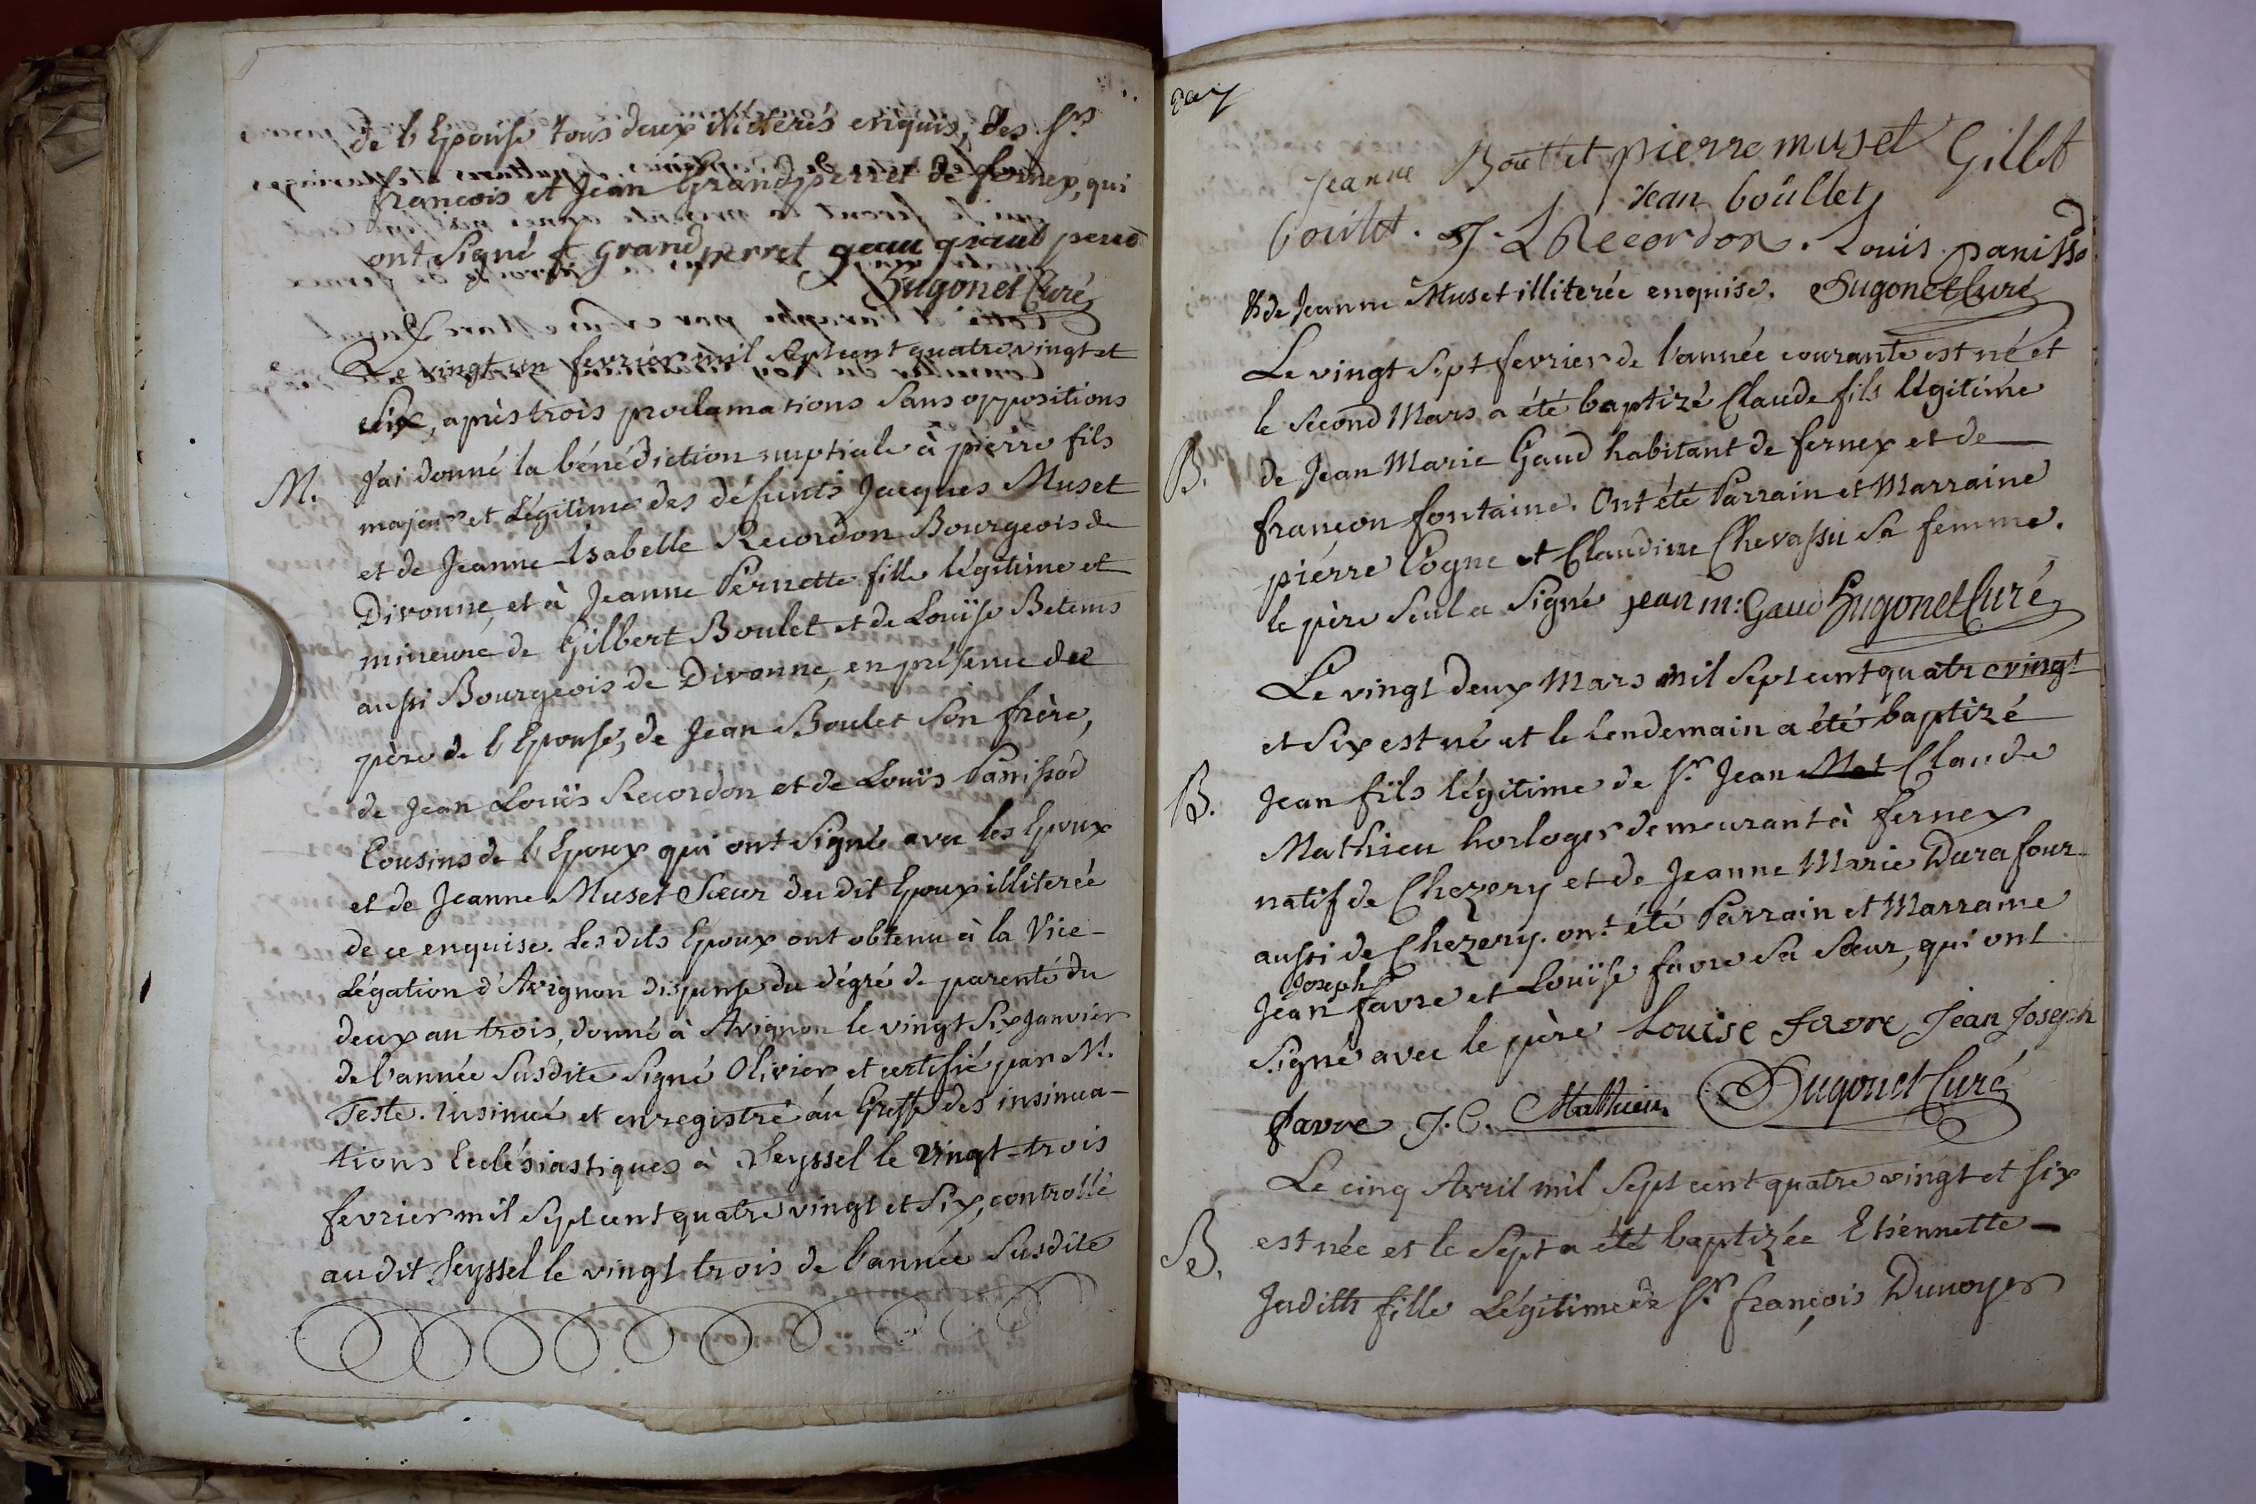 de l'Epouse tous deux illiterés enquis, des Srs
francois et Jean Grandperret de fernex, qui
ont signé f grandperret jean grand perret
Hugonet Curé
Le vingt-un fevrier mil sept cent quatre vingt et
six, après trois proclamations sans oppositions
M. J'ai donné la bénédiction nuptiale à pierre fils
majeur et Légitime des défunts Jacques Muset
et de Jeanne Isabelle Recordon Bourgeois de
Divonne, et à Jeanne Pernette fille légitime et
mineure de Gilbert Boulet et de Louïse Betems
aussi Bourgeois de Divonne, en présence du
père de l'Epouse, de Jean Boulet son frère,
de Jean Louïs Recordon et de Louïs Panissod
Cousins de l'Epoux qui ont signé avec les Epoux
et de Jeanne Muset Sœur du dit Epoux illiterée
de ce enquise. Les dits Epoux ont obtenu à la Vice-
Légation d'Avignon dispense du dégré de parenté du
deux au trois, donné à Avignon le vingt six Janvier
de l'année susdite signé Olivier et certifié par M.
Teste. insinué et enregistré au Greffe des insinua-
tions Ecclésiastiques à Seyssel le vingt-trois
fevrier mil sept cent quatre vingt et six, controllé
au dit Seyssel le vingt trois de l'année susdite
Jeanne Boulet pierre muset Gillbt
jean boûllet
boûlet. J. L Recordon. Louïs panissod
& de Jeanne Muset illiterée enquise. Hugonet Curé
Le vingt sept fevrier de l'année courante est né et
le second Mars a été baptizé Claude fils légitime
B. de Jean Marie Gaud habitant de fernex et de
françon fontaine. Ont été Parrain et Marraine
pierre Cogne et Claudine Chevassu sa femme.
le père seul a signé jean m: Gaud Hugonet Curé
Le vingt deux Mars mil sept cent quatre vingt
et six est né et le lendemain a été baptizé
B. Jean fils légitime de Sr Jean Mat Claude
Mathieu horloger demeurant à fernex
natif de Chezery et de Jeanne Marie Durafour
aussi de Chezery. ont été Parrain et Marraine
Joseph
Jean favre et Louïse favre sa Sœur, qui ont
signé avec le père Louise favre Jean Joseph
favre J. C. Mathieu Hugonet Curé
Le cinq Avril mil sept cent quatre vingt et six
B. est née et le sept a été baptizée Etiennette
Judith fille Légitime de Sr françois Duvoyer